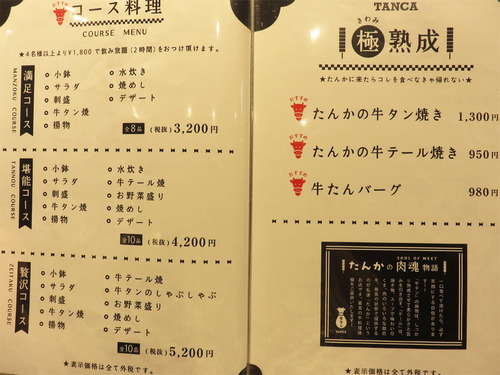 おすすめ
コース料理
COURSE MENU
★4名様以上より¥1,800で飲み放題(2時間)をおつけ頂けます。
満足コース
MANZOKU COURSE
小鉢
サラダ
刺盛
牛タン焼
揚物
水炊き
焼めし
デザート
全8品 (税抜) 3,200円
堪能コース
TANNOU COURSE
小鉢
サラダ
刺盛
牛タン焼
揚物
水炊き
牛テール焼
お野菜盛り
焼めし
デザート
全10品 (税抜) 4,200円
贅沢コース
ZEITAKU COURSE
小鉢
サラダ
刺盛
牛タン焼
揚物
牛テール焼
牛タンのしゃぶしゃぶ
お野菜盛り
焼めし
デザート
全10品 (税抜) 5,200円
★表示価格は全て外税です。
TANCA
きわみ
極熟成
★たんかに来たらコレを食べなきゃ帰れない★
おすすめ
たんかの牛タン焼き 1,300円
おすすめ
たんかの牛テール焼き 950円
おすすめ
牛たんバーグ 980円
SOUL OF MEET
たんかの肉魂物語
TANCA
★表示価格は全て外税です。